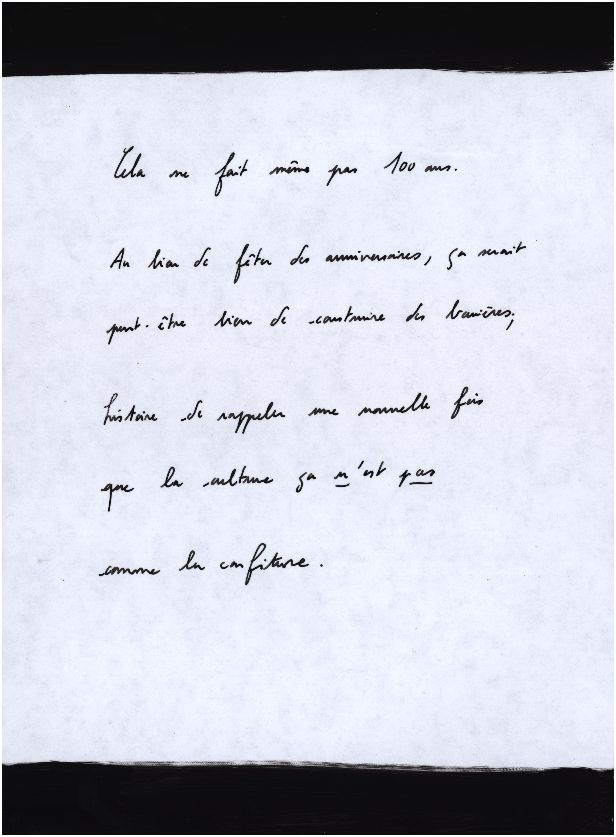 Cela ne fait même pas 100 ans.
Au lieu de fêter des anniversaires, ça serait
peut-être bien de construire des barrières,
histoire de rappeler une nouvelle fois
que la culture ça n'est pas
comme la confiture.